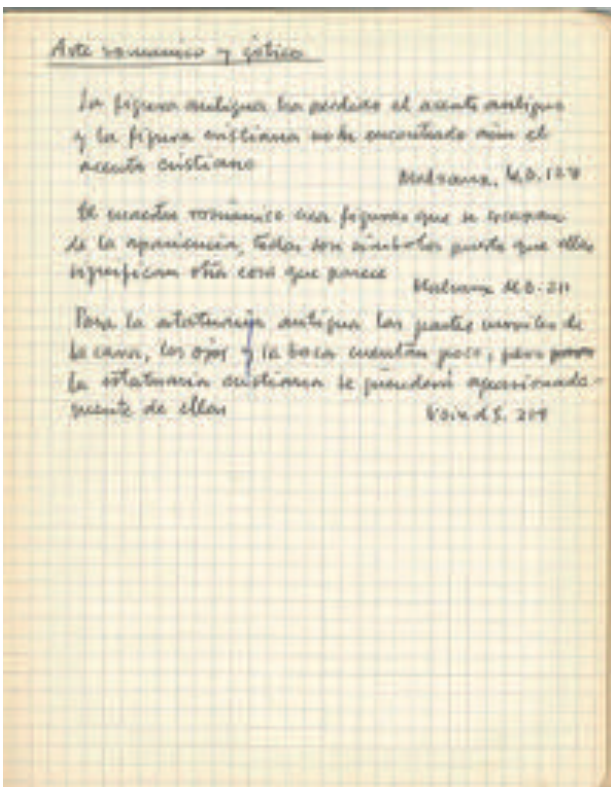 Arte románico y gótico
La figura antigua ha perdido el acento antiguo
y la figura cristiana no ha encontrado aún el
acento cristiano
Malraux, M.D. 127
románico crea figuras que se escapan
de la apariencia, todas son símbolos puesto que ellas
significan otra cosa que parece
Malraux M.D. 211
Para la estatuaria antigua las partes móviles de
la cara, los ojos y la boca cuentan poco, pero
la estatuaria cristiana se prenderá apasionada-
mente de ellas